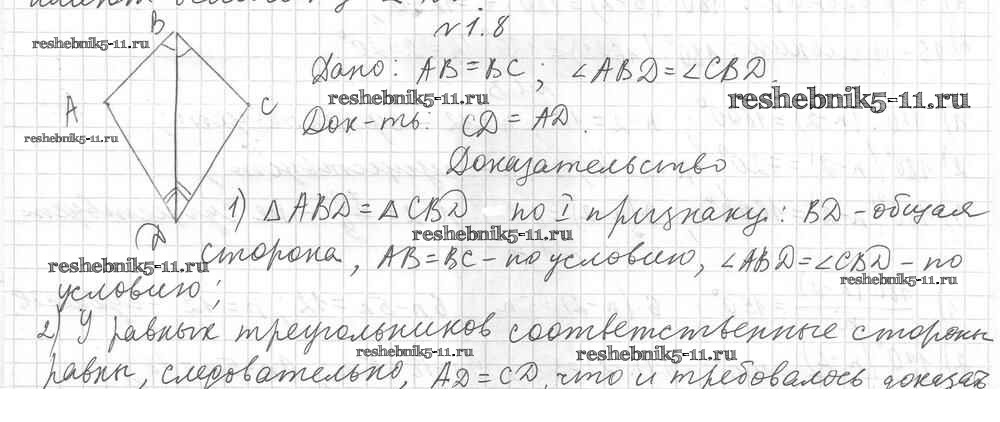 №1.8
B
Дано: AB = BC; ∠ABD = ∠CBD.
reshebnik5-11.ru
reshebnik5-11.ru
reshebnik5-11.ru
A
C
Док-ть: CD = AD.
reshebnik5-11.ru
Доказательство
1) △ABD = △CBD по I признаку: BD - общая
reshebnik5-11.ru
D
сторона, AB = BC - по условию, ∠ABD = ∠CBD - по
reshebnik5-11.ru
reshebnik5-11.ru
условию;
2) У равных треугольников соответственные стороны
reshebnik5-11.ru
reshebnik5-11.ru
равны, следовательно, AD = CD, что и требовалось доказать